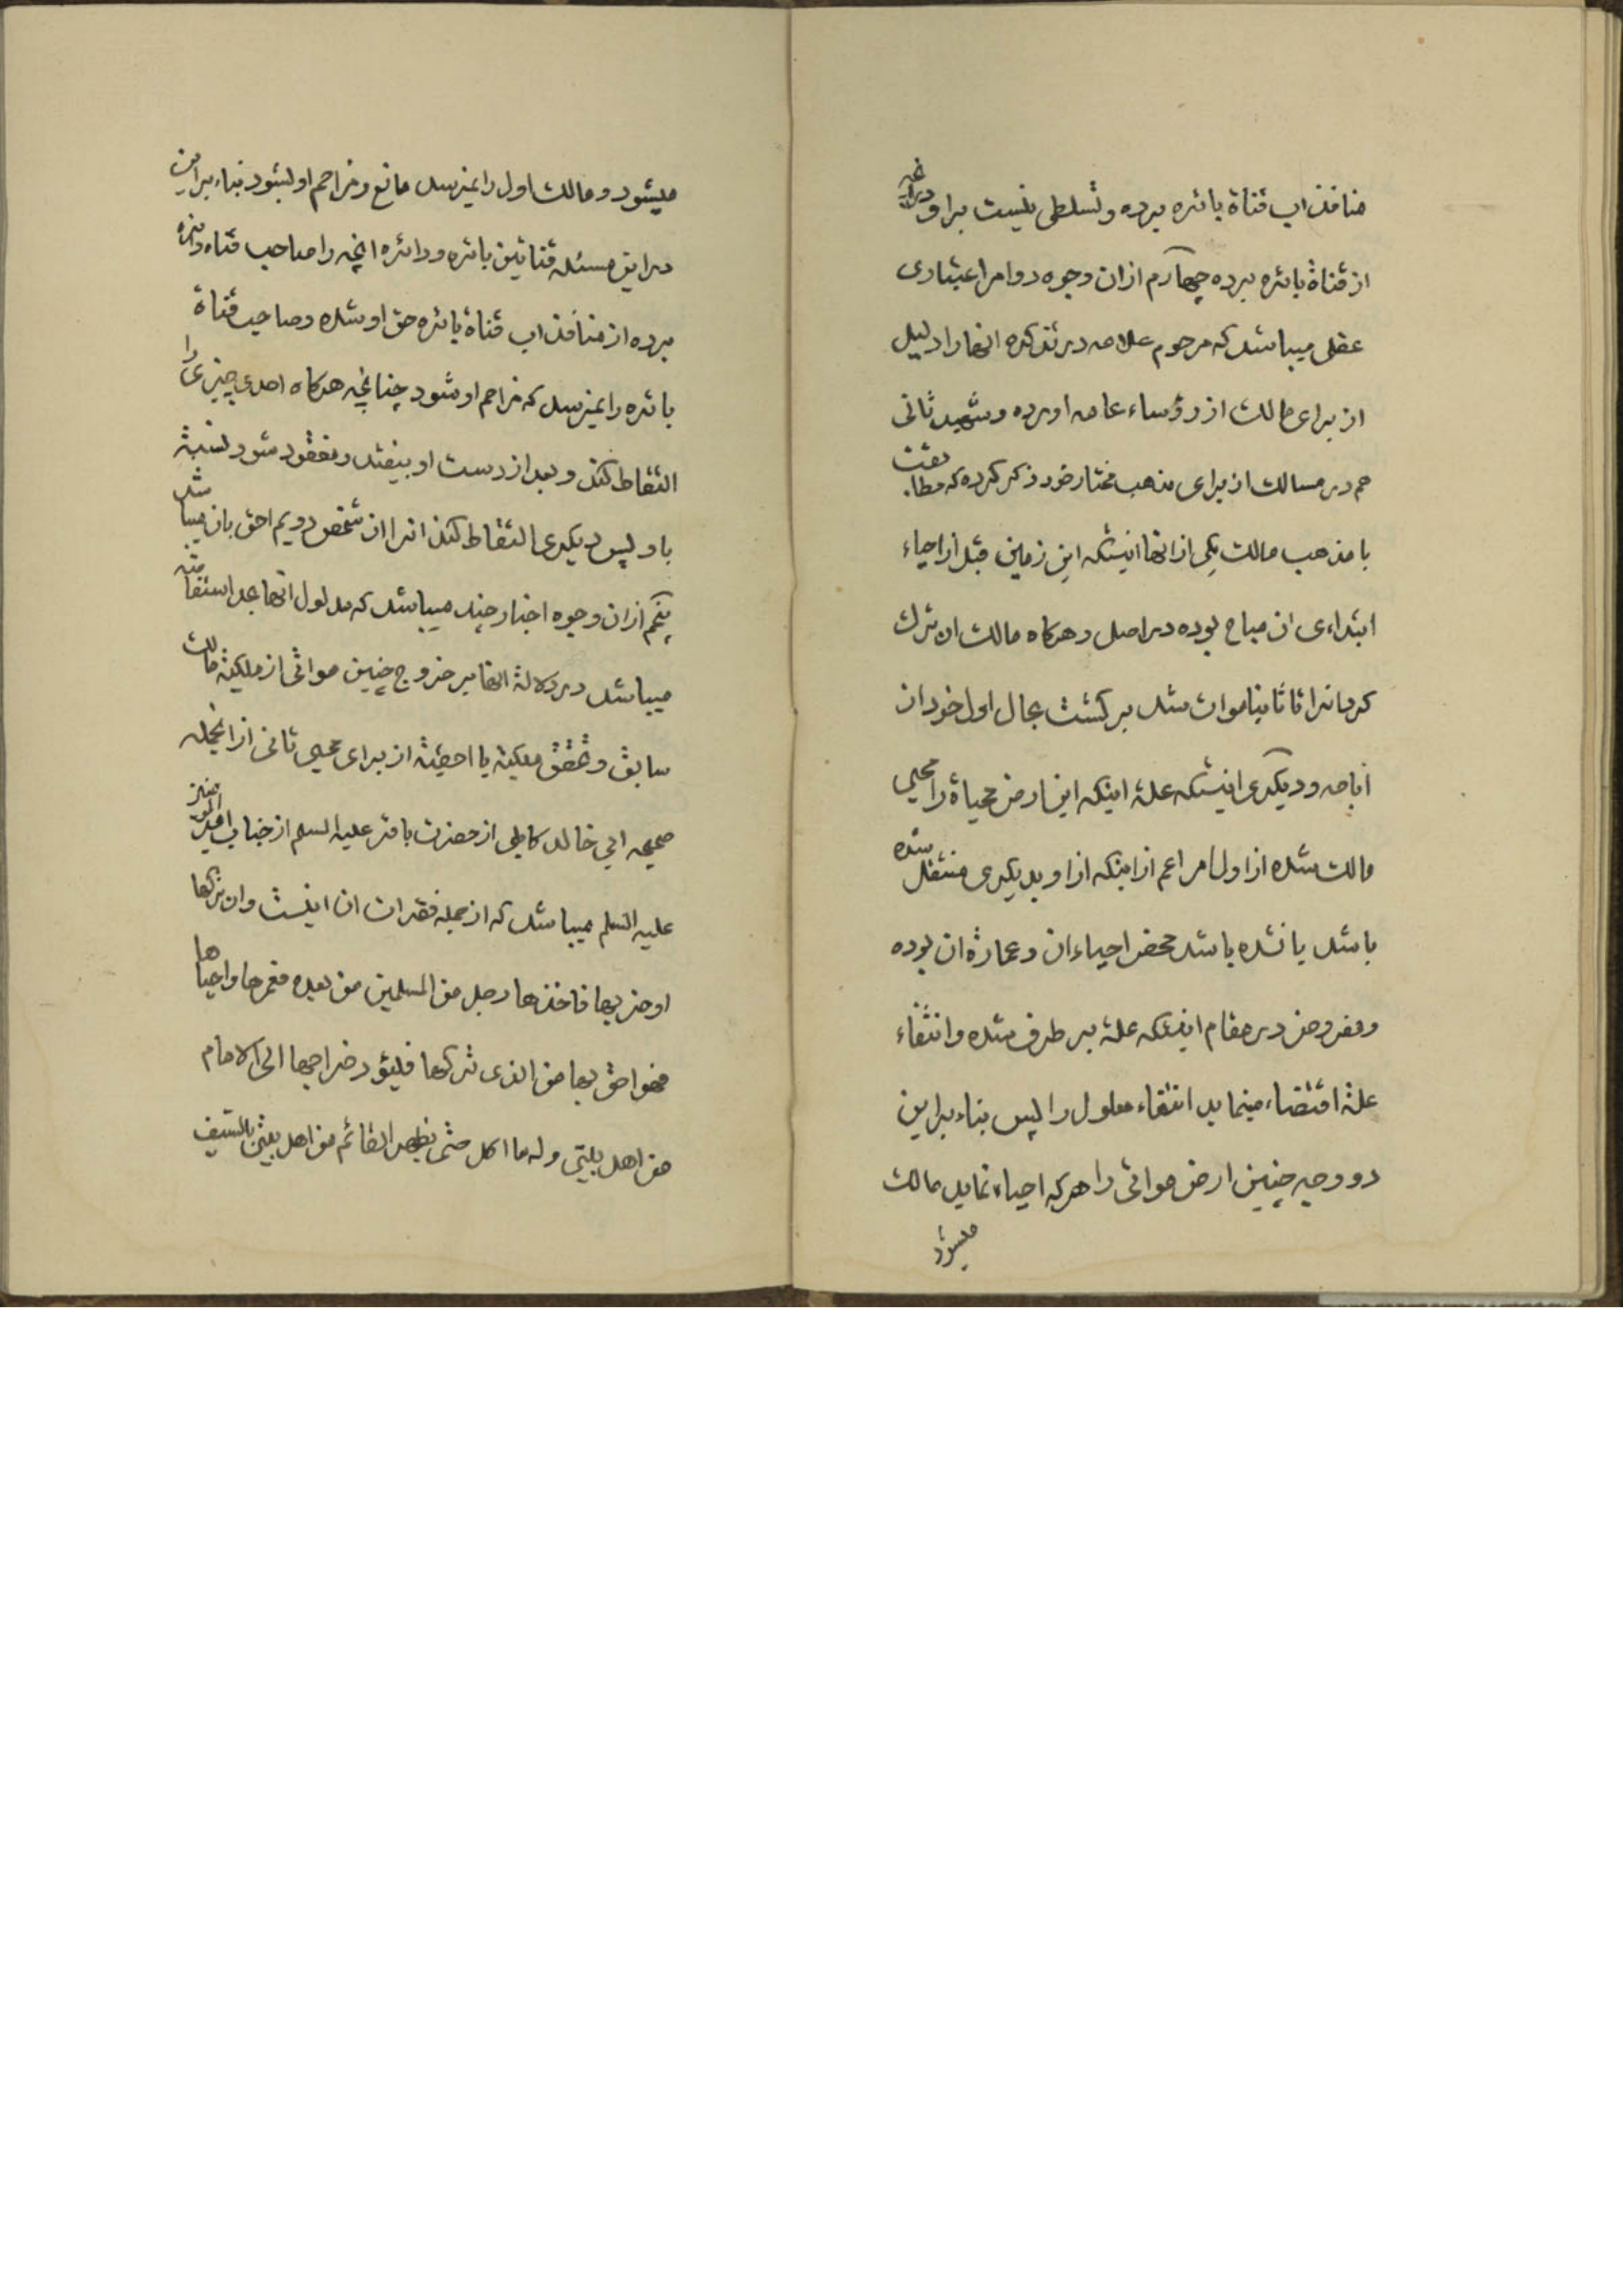 منافذ اب قناة بائره برده و تسلطی نیست بر او در غیر
از قناة بائره برده چهارم از ان وجوه دو امر اعتباری
عقلی میباشد که مرحوم علامه در تذکره انها را دلیل
از برای مالک از رؤساء عامه اورده و شهید ثانی
هم در مسالک از برای مذهب مختار خود ذکر کرده که مطابقت
با مذهب مالک یکی از انها اینستکه این زمین قبل از احیاء
ابتداءی ان مباح بوده در اصل و هرکاه مالک ان ترک
کرد انرا تا ثانیا موات شد برکشت بحال اول خود از
اباحه و دیکری اینستکه علة اینکه این ارض محیاة را محیی
مالک شده از اول امر اعم از اینکه از او بدیکری منتقل شده
باشد یا نشده باشد محض احیاء ان و عمارة ان بوده
و مفروض در مقام اینکه علة بر طرف شده و انتفاء
علة اقتضاء مینماید انتفاء معلول را پس بناء براین
دو وجه چنین ارض مواتی را هرکه احیاء نماید مالک
میشود
میشود و مالک اول را نمیرسد مانع و مزاحم او بشود بناء براین
در این مسئله قناتین بائره و دائره انچه را صاحب قناه دائره
برده از منافذ اب قناة بائره حق او شده و صاحب قناة
بائره را نمیرسد که مزاحم او شود چنانچه هرکاه احدی چیزی را
التقاط کند و بعد از دست او بیفتد و مفقود شود نسبة
باو پس دیکری التقاط کند انرا ان شخص دویم احق بان میباشد
پنجم از ان وجوه اخبار چند میباشد که مدلول انها بعد استفا
میباشد در دلالة انها بر خروج چنین مواتی از ملکیة مالک
سابق و تحقق ملکیة یا احقیة از برای محیی ثانی از انجمله
صحیحه ابی خالد کابلی از حضرت باقر علیه السلم از جناب امیر المؤمنین
علیه السلم میباشد که از جمله فقرات ان اینست وان ترکها
او خربها فاخذها رجل من المسلمین من بعده فعمرها و احیاها
فهو احق بها من الذی ترکها فلیؤد خراجها الی الامام
من اهل بیتی و له ما اکل حتی یظهر القائم من اهل بیتی بالسیف